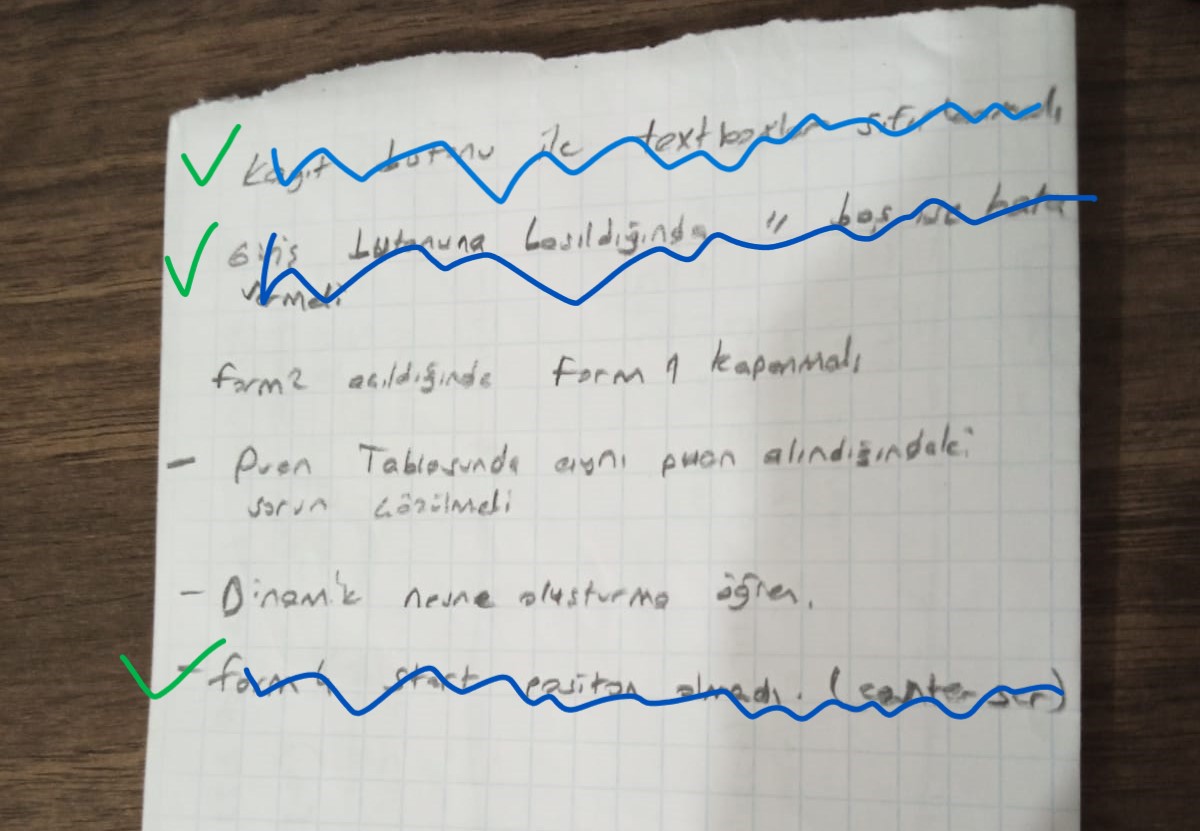 Kayıt butonu ile textboxlar sıfırlanmalı
Giriş butonuna basıldığında " boş ise hata
vermeli
form2 açıldığında form 1 kapanmalı
- Puan Tablosunda aynı puan alındığındaki
sorun çözülmeli
- Dinamik nesne oluşturma öğren.
- form 4 start positon olmadı. (center scr)